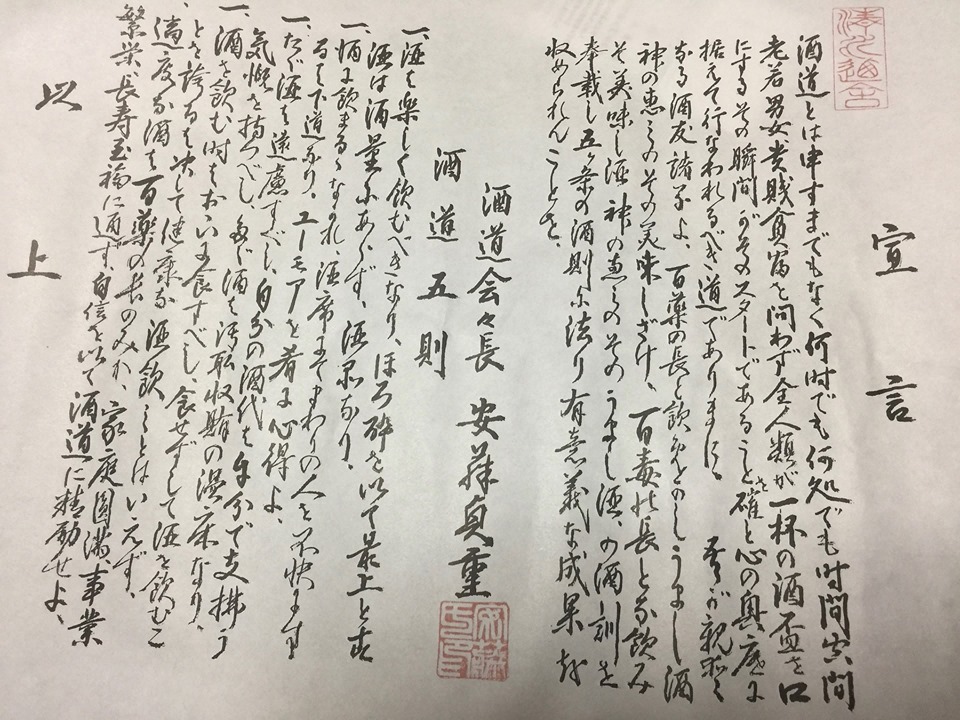 宣言
酒道とは申すまでもなく何時でも何処でも時間空間
老若男女、貴賎貧富を問わず全人類が一杯の酒盃を口
にするその瞬間がそのスタートであることを確と心の奥底に
据えて行なわれるべき道でありまする。吾が親愛
なる酒友諸子よ、百薬の長と飲めとのしうまし酒
神の恵みのその美味しざけ、百毒の長となる飲み
そ美味し酒神の恵みのそのうまし酒、の酒訓を
奉載し五ヶ条の酒則に法り有意義な成果を
収められんことを、
酒道会々長 安蘓貞重
酒道五則
一、酒は楽しく飲むべきなり、ほろ酔を以て最上とす
酒は酒量にあらず、酒品なり、
一、酒に飲まるゝなかれ、酒席にてまわりの人を不快にす
るは下道なり、ユーモアを肴に心得よ、
一、たゞ酒は遠慮すべし、自分の酒代は自分で支拂う
気慨を持つべし、たゞ酒は汚職収賄の温床なり、
一、酒を飲む時はおおいに食すべし、食せずして酒を飲むこ
とを誇るは決して健康な酒飲みとはいえず、
一、適度な酒は百薬の長のみか、家庭円満、事業
繁栄、長寿至福に通ず、自信を以て酒道に精励せよ、
以上